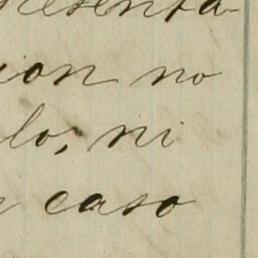 resenta-
ion no
lo; ni
caso